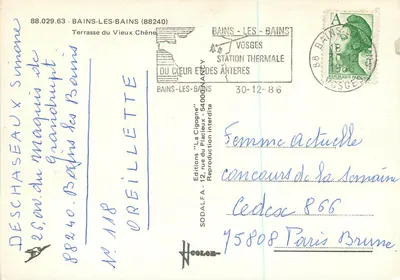 88.029.63 - BAINS-LES-BAINS (88240)
Terrasse du Vieux Chêne
BAINS - LES - BAINS
VOSGES
STATION THERMALE
DU CŒUR ET DES ARTERES
BAINS-LES-BAINS 30-12-86
A
88 BAINS
VOSGES
DESCHASEAUX Simone
26, av. du Maquis de
Grandrupt
88240. Bains les Bains
N° 118
OREILLETTE
Editions "La Cigogne"
SODALFA - 12, rue du Placieux - 54000 NANCY
Reproduction interdite
COLOR
Femme actuelle
concours de la semaine
Cedex 866
75808 Paris Brune